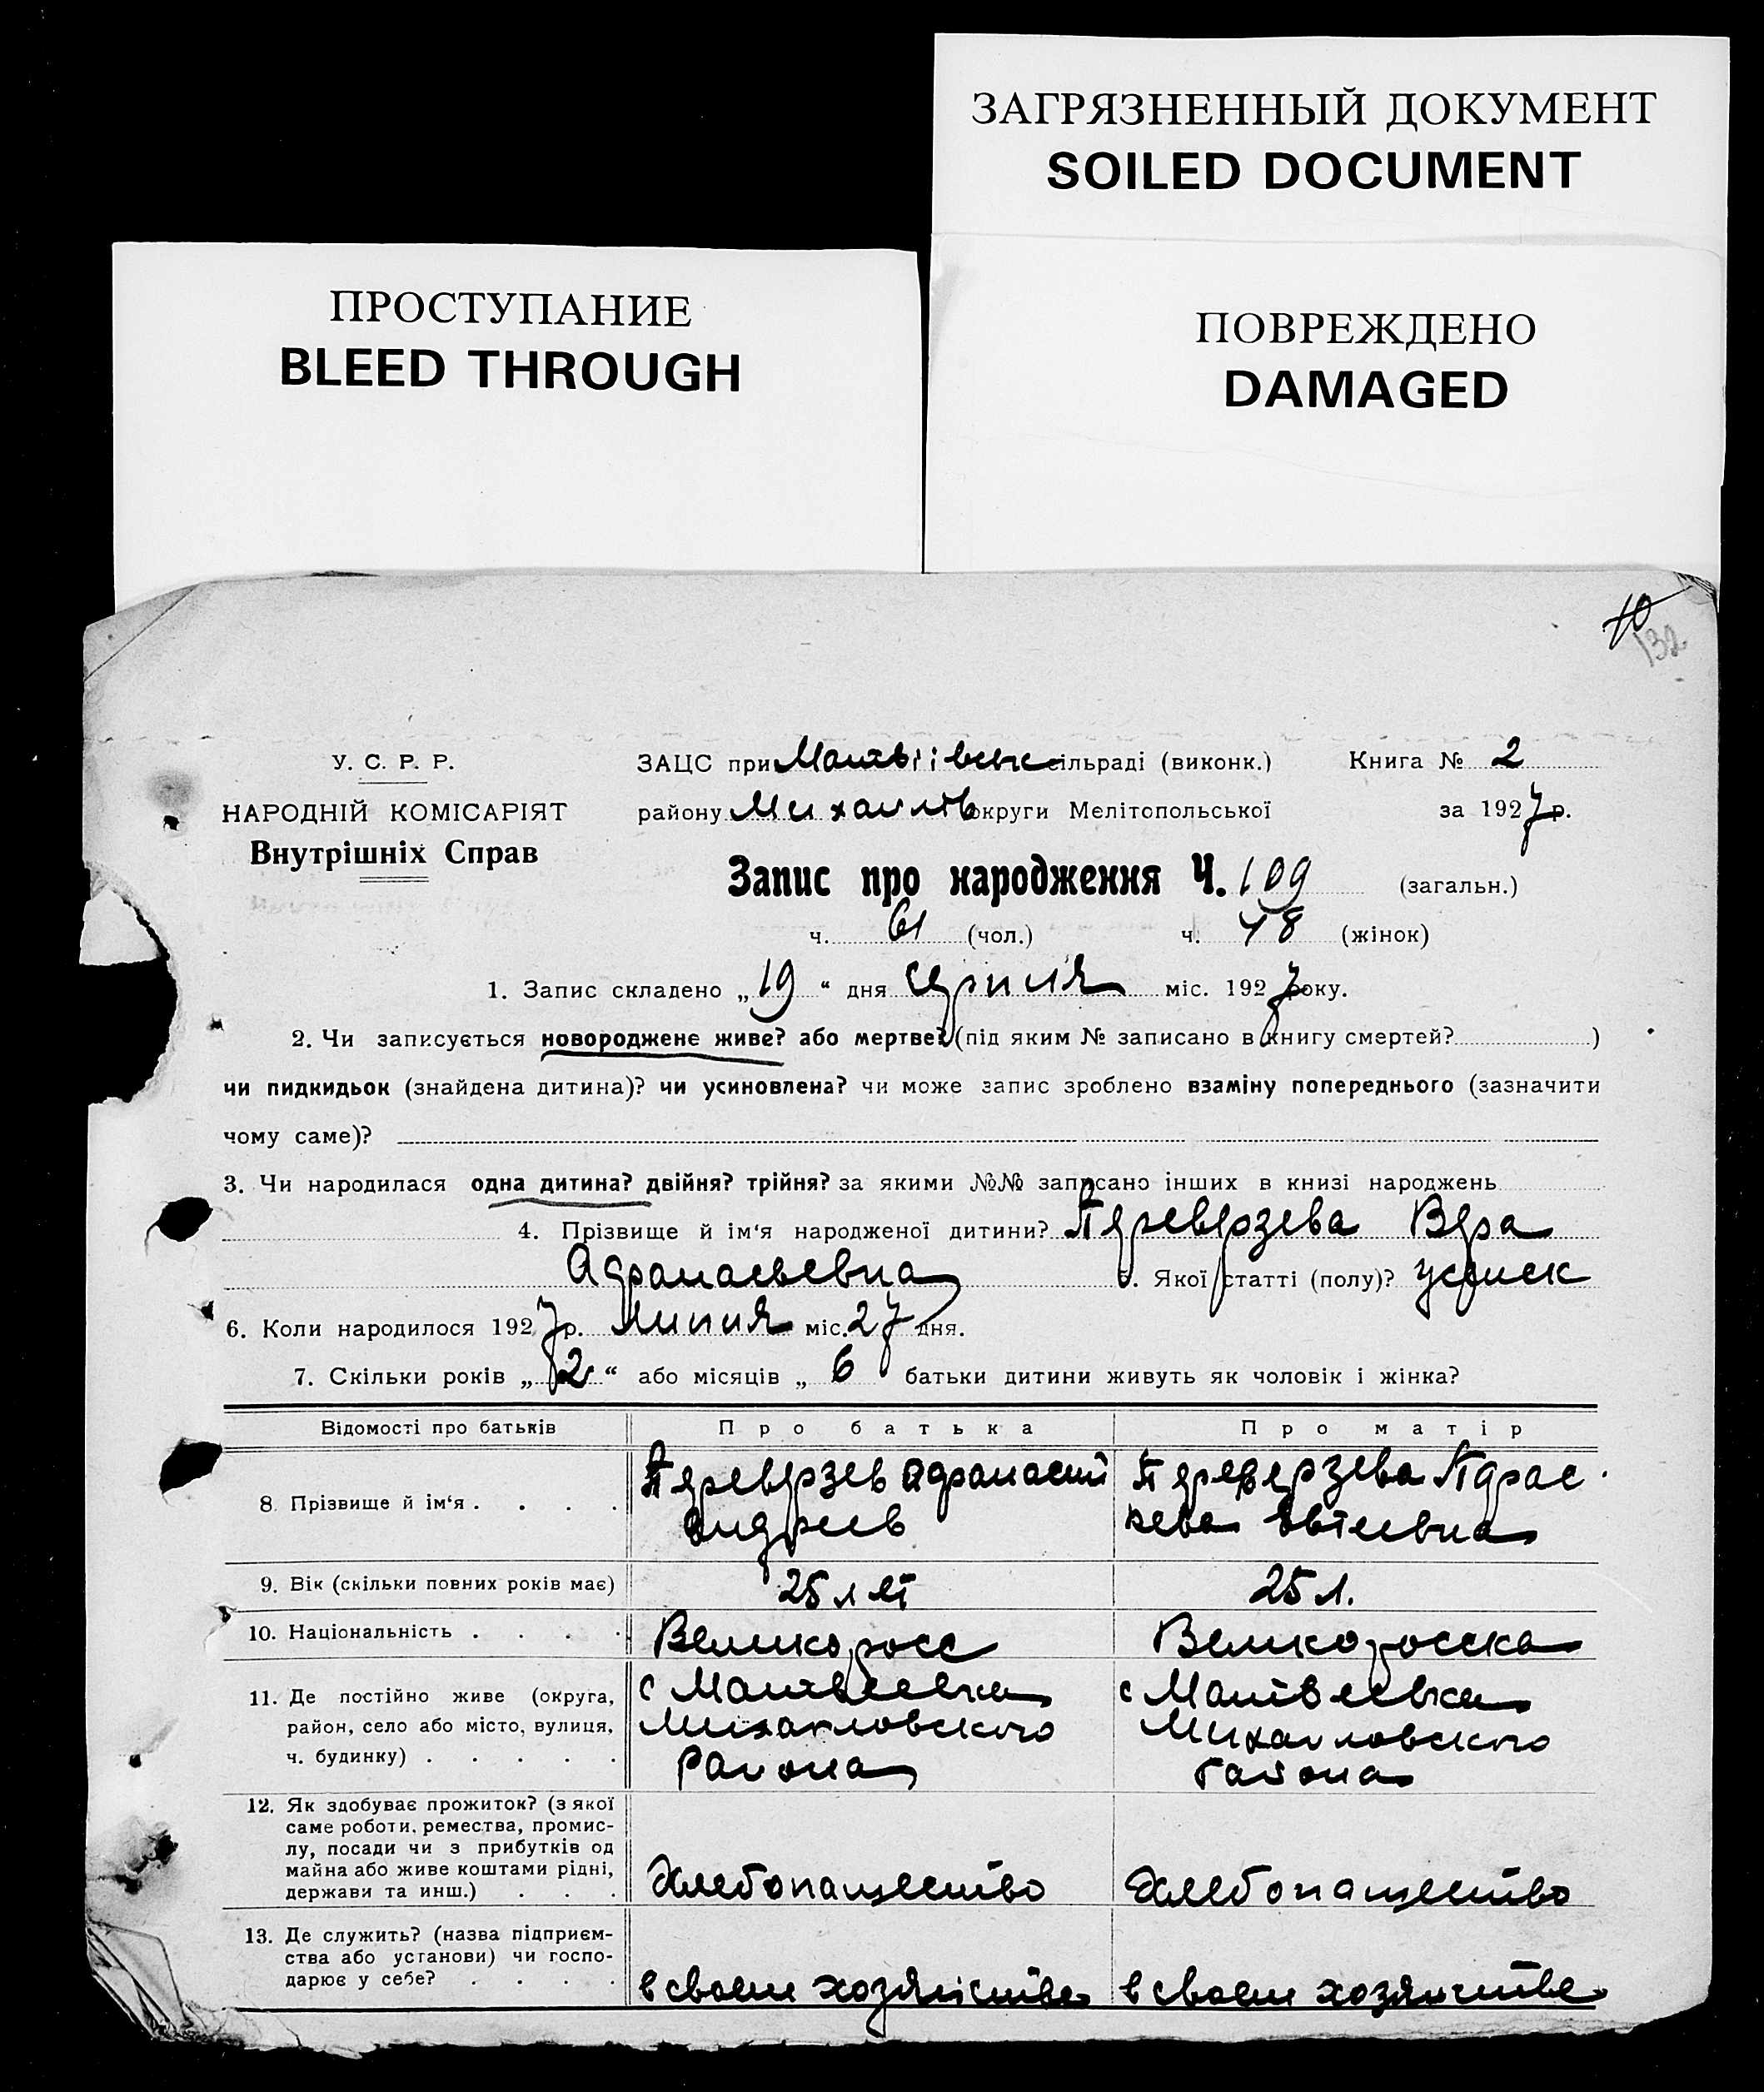 ЗАГРЯЗНЕННЫЙ ДОКУМЕНТ
SOILED DOCUMENT
ПРОСТУПАНИЕ
BLEED THROUGH
ПОВРЕЖДЕНО
DAMAGED
10
132
У. С. Р. Р.
НАРОДНІЙ КОМІСАРІЯТ
Внутрішніх Справ
ЗАЦС при Матвіївськ сільраді (виконк.) Книга № 2
району Михайлів округи Мелітопольської за 1927 р.
Запис про народження Ч. 109 (загальн.)
ч. 61 (чол.) ч. 48 (жінок)
1. Запис складено „19“ дня серпня міс. 1927 року.
2. Чи записується новороджене живе? або мертве? (під яким № записано в книгу смертей? )
чи пидкидьок (знайдена дитина)? чи усиновлена? чи може запис зроблено взаміну попереднього (зазначити
чому саме)?
3. Чи народилася одна дитина? двійня? трійня? за якими №№ записано інших в книзі народжень
4. Прізвище й ім‘я народженої дитини? Переверзева Вера
Афанасьевна 5. Якої статті (полу)?
6. Коли народилося 1927 р. липня міс. 27 дня.
7. Скільки років „2“ або місяців „ 6 батьки дитини живуть як чоловік і жінка?
Відомості про батьків Про батька Про матір
8. Прізвище й ім‘я . . . . Переверзев Афанасий Переверзева Парас
Андреев кева Евтеевна
9. Вік (скільки повних років має) 25 лет 25 л.
10. Національність . . . . Великоросс Великоросска
11. Де постійно живе (округа, с Матвеевка с Матвеевка
район, село або місто, вулиця, Михайловского Михайловского
ч. будинку) . . . . . Района района
12. Як здобуває прожиток? (з якої
саме роботи, ремества, промис-
лу, посади чи з прибутків од
майна або живе коштами рідні,
держави та инш.) . . . Хлебопашество Хлебопашество
13. Де служить? (назва підприєм-
ства або установи) чи госпо-
дарює у себе? . . . . в своем хозяйстве в своем хозяйстве